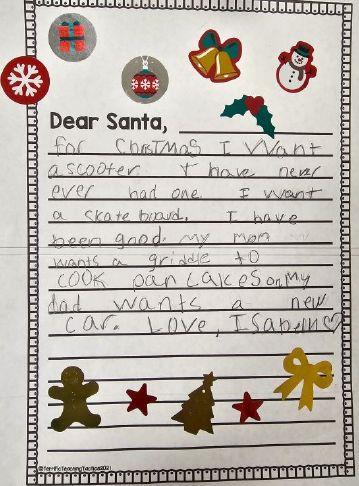 Dear Santa,
for ChrisTmas I Want
a scooter. I have never
ever had one. I want
a skate board. I have
been good. my mom
wants a griddle to
cook pan cakes on. My
dad wants a new
car. Love, Isabella
©TerrificTeachingTactics2021